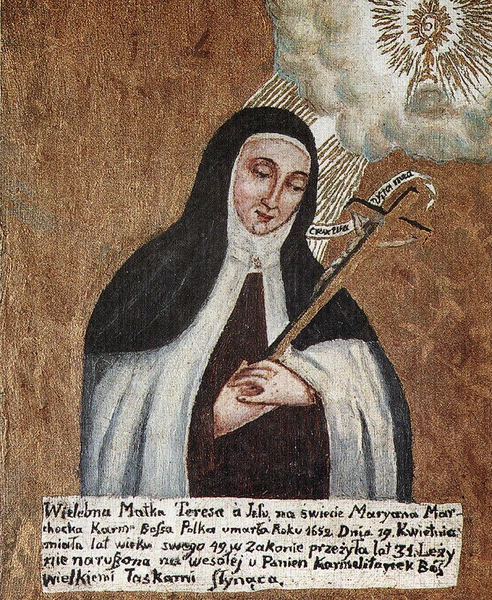 Vita mea
Crux tua
Wielebna Matka Teresa a Iesu, na świecie Maryana Mar-
chocka Karm: Bossa Polka umarła Roku 1652. Dnia 19. Kwietnia
miała lat wieku swego 49, w Zakonie przeżyła lat 31. Leży
nie narusżona na wesołey u Panien Karmelitanek Bos
wielkiemi Łaskami słynąca.